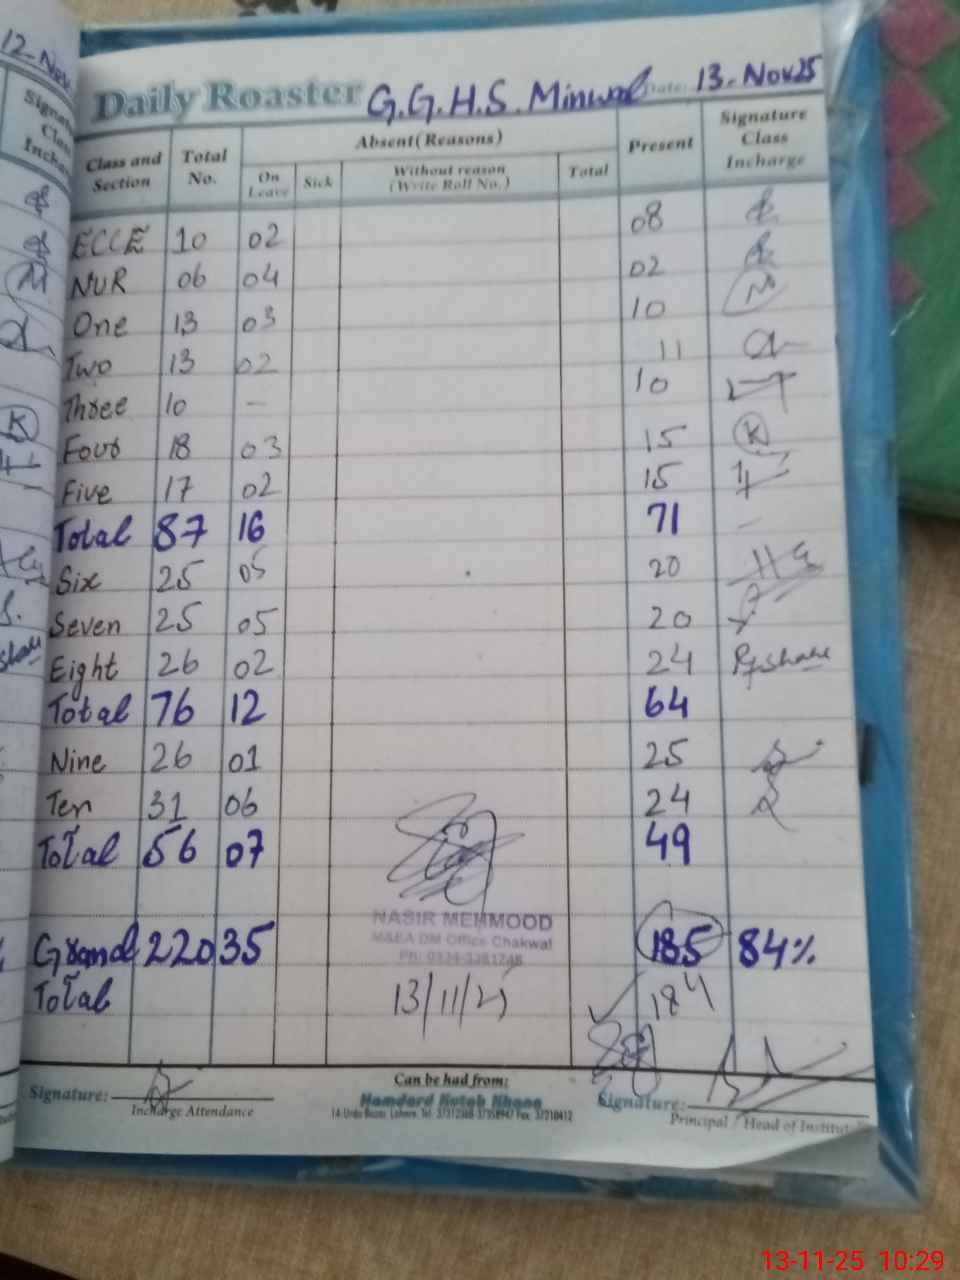 12-Nov
Daily Roaster G.G.H.S. Minwal Date: 13-Nov 25
Class and Section Total No. Absent (Reasons) Present Signature Class Incharge
On Leave Sick Without reason (Write Roll No.) Total
ECCE 10 02 08
NUR 06 04 02
One 13 03 10
Two 13 02 11
Three 10 — 10
Four 18 03 15 K
Five 17 02 15
Total 87 16 71 -
Six 25 05 20
Seven 25 05 20
Eight 26 02 24
Total 76 12 64
Nine 26 01 25
Ten 31 06 24
Total 56 07 49
NASIR MEHMOOD
M&EA DM Office Chakwal
Grand 220 35 185 84%
Total 13/11/25 184
Signature: Incharge Attendance
Can be had from:
Hamdard Kutab Khana
Signature: Principal / Head of Institut
13-11-25 10:29